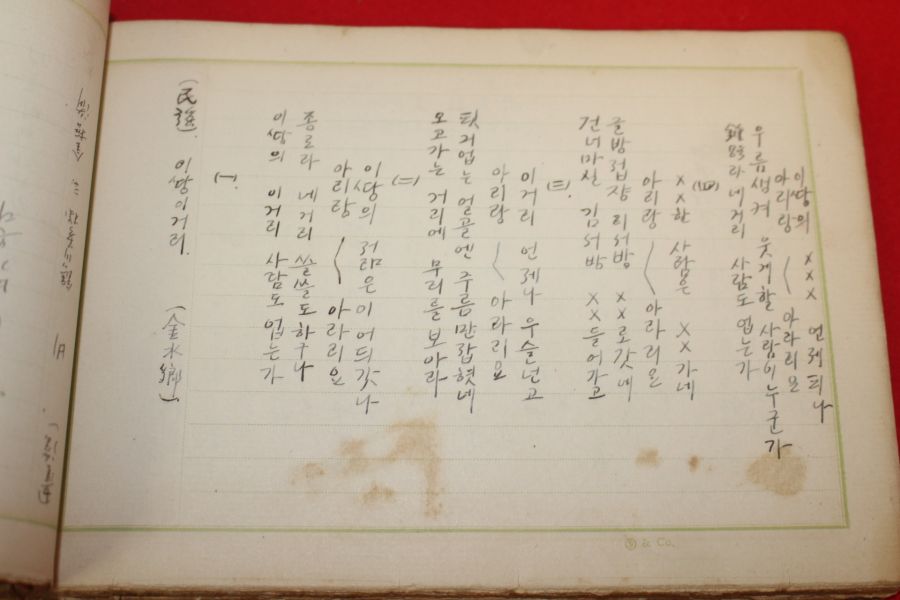 (民謠). 이땅이거리. (金水鄕)
(一).
이땅의 이거리 사람도 업는가
종로라 네거리 쓸쓸도하구나
아리랑 〱 아라리요
이땅의 젊은이 어듸갓나
(二)
오고가는 거리에 무리를 보아라
핏거업는 얼골엔 주름만잡혓네
아리랑 〱 아라리요
이거리 언제나 우슬넌고
(三).
건너마신 김서방 ××들어가고
글방접쟝 리서방 ××로갓네
아리랑 〱 아라리요
××한 사람은 ××가네
(四)
鍾路라네거리 사람도 업는가
우름생켜 웃게할 사람이누군가
아리랑 〱 아라리요
이땅의 ××× 언제피나
& Co.